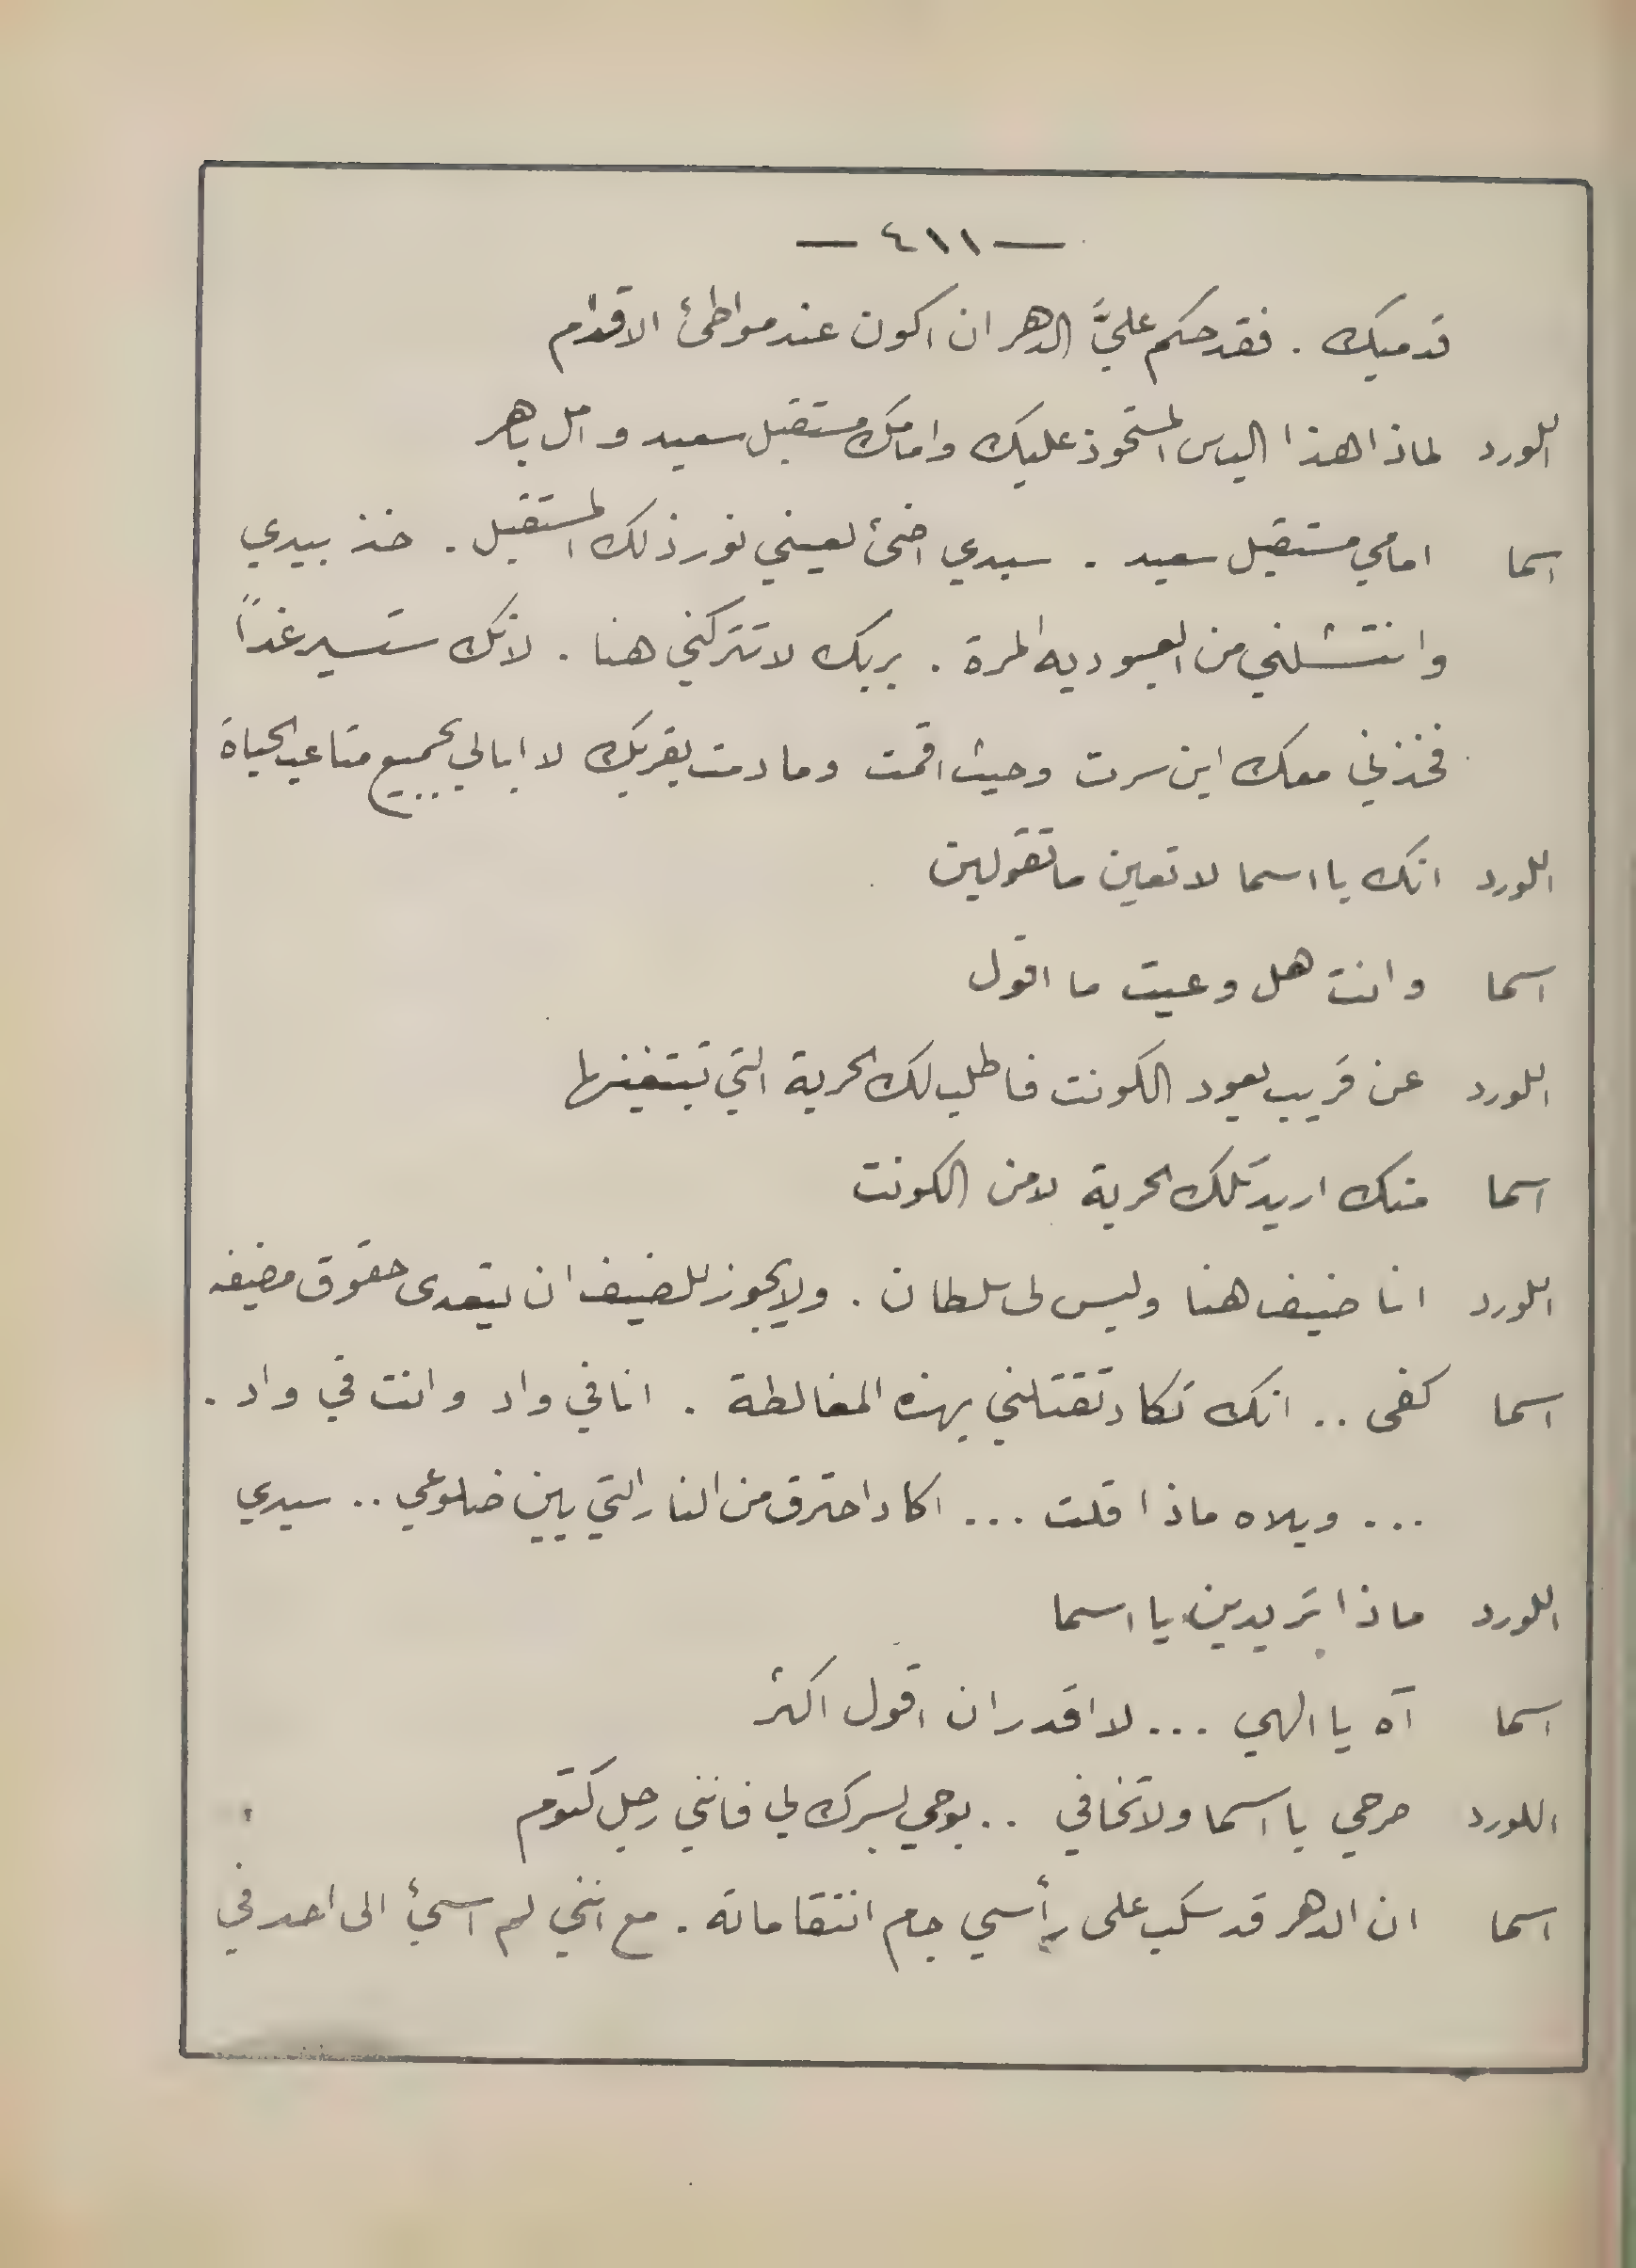 — ٤١١ —
قدميك . فقد حكم عليَّ الدهر ان اكون عند مواطئ الاقدام
اللورد لماذا هذا الياس المستحوذ عليك وامامك مستقبل سعيد و امل باهر
اسما امامي مستقبل سعيد . سيدي اضئ لعيني نور ذلك المستقبل . خذ بيدي
وانتشلني من العبوديه المرة . بربك لا تتركني هنا . لانك ستسير غداً
فخذني معك اين سرت وحيث اقمت وما دمت بقربك لا ابالي بجميع متاعب الحياة
اللورد انك يا اسما لا تعين ما تقولين
اسما وانت هل وعيت ما اقول
اللورد عن قريب يعود الكونت فاطلب لك الحرية التي تبتغينها
اسما منك اريد تلك الحرية لا من الكونت
اللورد انا ضيف هنا وليس لى سلطان . ولا يجوز للضيف ان يتعدى حقوق مضيفه
اسما كفى .. انك تكاد تقتلني بهذه المغالطة . انا في واد وانت في واد .
... ويلاه ماذا قلت ... اكاد احترق من النار التي بين ضلوعي .. سيدي
اللورد ماذا تريدين يا اسما
اسما آه يا الهي ... لا اقدر ان اقول اكثر
اللورد صرحي يا اسما ولا تخافي .. بوحي بسرك لي فانني رجل كتوم
اسما ان الدهر قد سكب على رأسي جام انتقاماته . مع انني لم اسيئ الى احد في